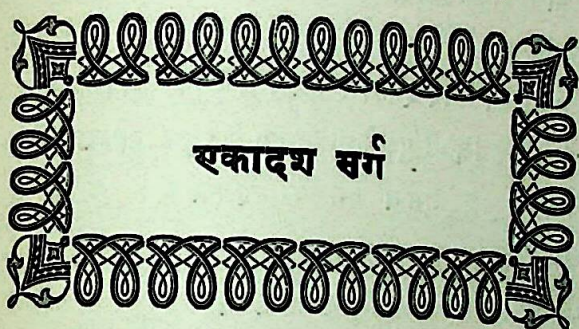 एकादश सर्ग